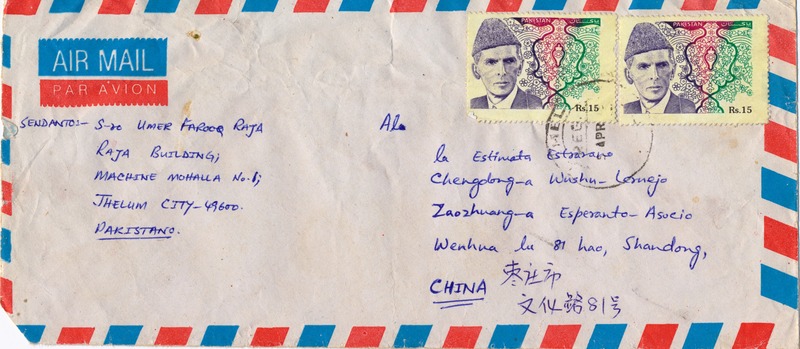 AIR MAIL
PAR AVION
PAKISTAN
Rs.15
PAKISTAN
Rs.15
APR
SENDANTO:- S-ro UMER FAROOQ RAJA
RAJA BUILDING;
MACHINE MOHALLA No.1;
JHELUM CITY-49600.
PAKISTANO.
Al
la Estimata Estrarano
Chengdong-a Wushu-Lernejo
Zaozhuang-a Esperanto-Asocio
Wenhua lu 81 hao, Shandong,
CHINA 枣庄市
文化路81号